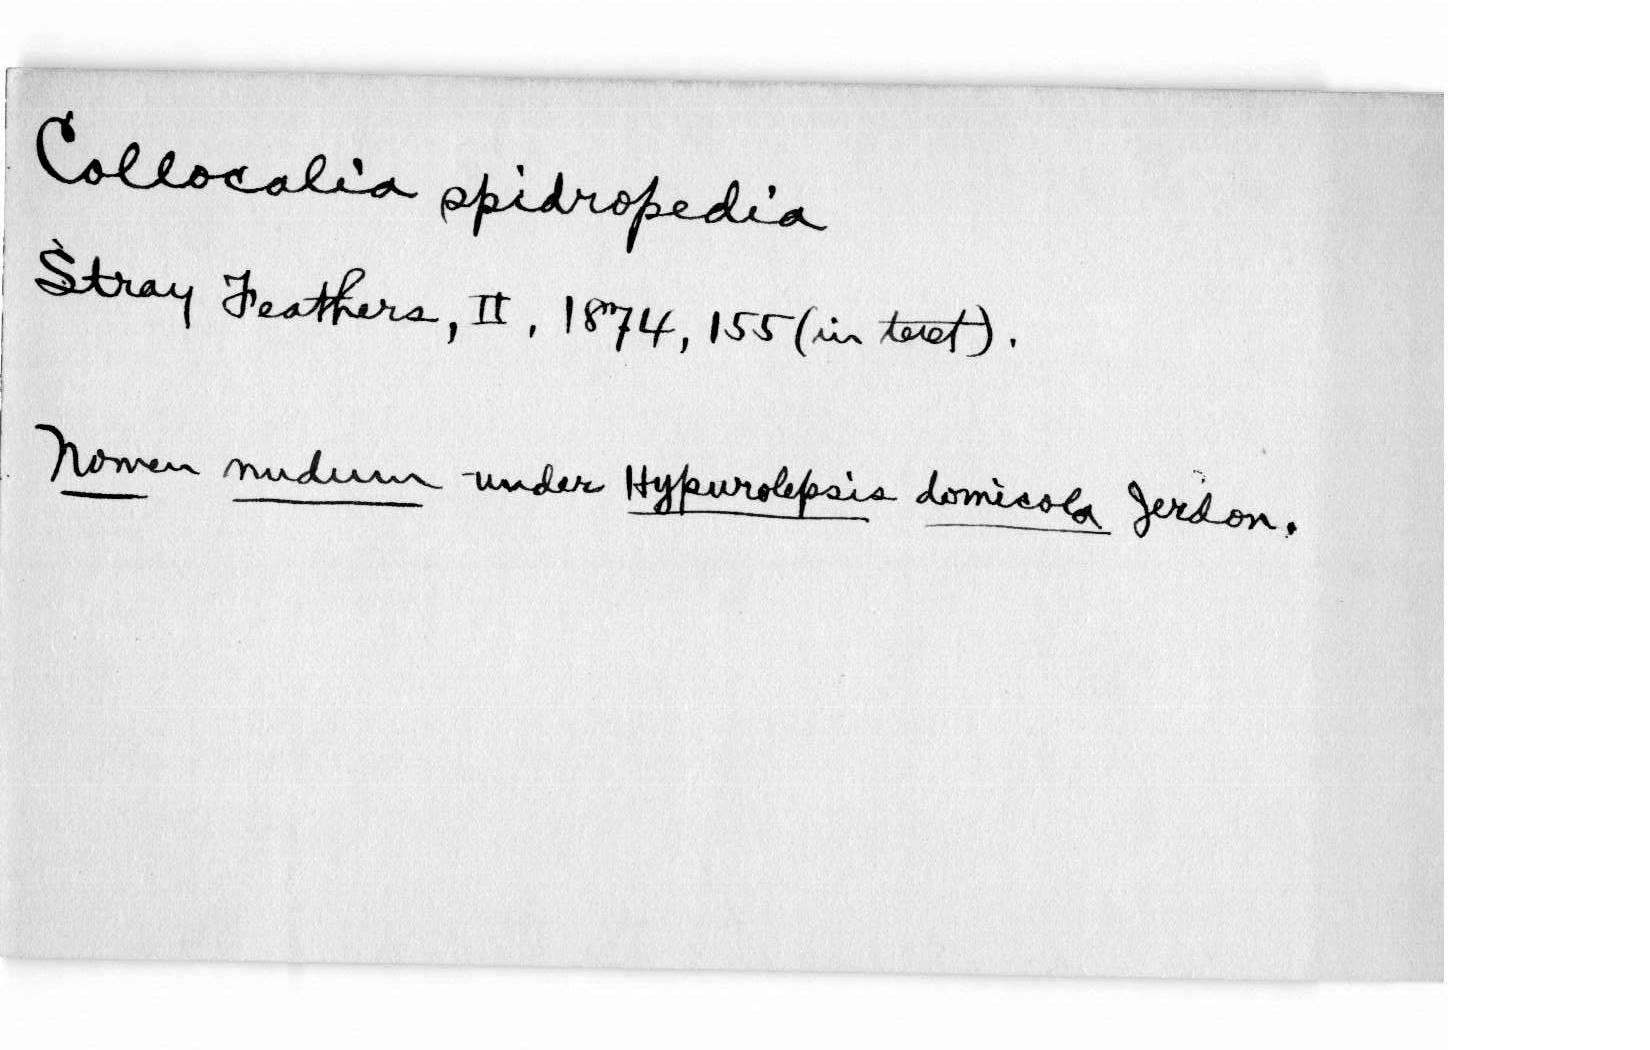 Collocalia spidropedia
Stray Feathers, II, 1874, 155 (in text).
Nomen nudum under Hypurolepsis domicola Jerdon.